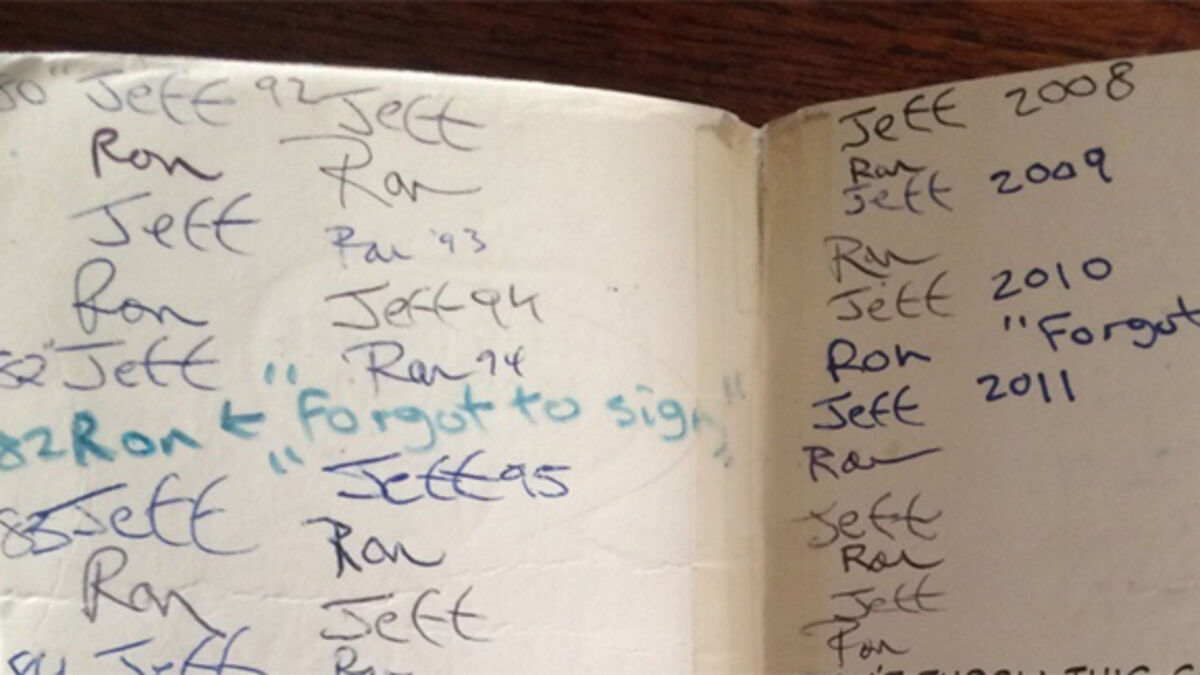 80" Jeff
Ron
Jeff
Ron
82" Jeff
82 Ron ← "Forgot to sign"
83 Jeff
Ron
84 Jeff
92 Jeff
Ron
Ron '93
Jeff 94
Ron 94
" "
Jeff 95
Ron
Jeff
Ron
Jeff 2008
Ron
Jeff 2009
Ron
Jeff 2010
Ron "Forgot
Jeff 2011
Ron
Jeff
Ron
Jeff
Ron
THIS